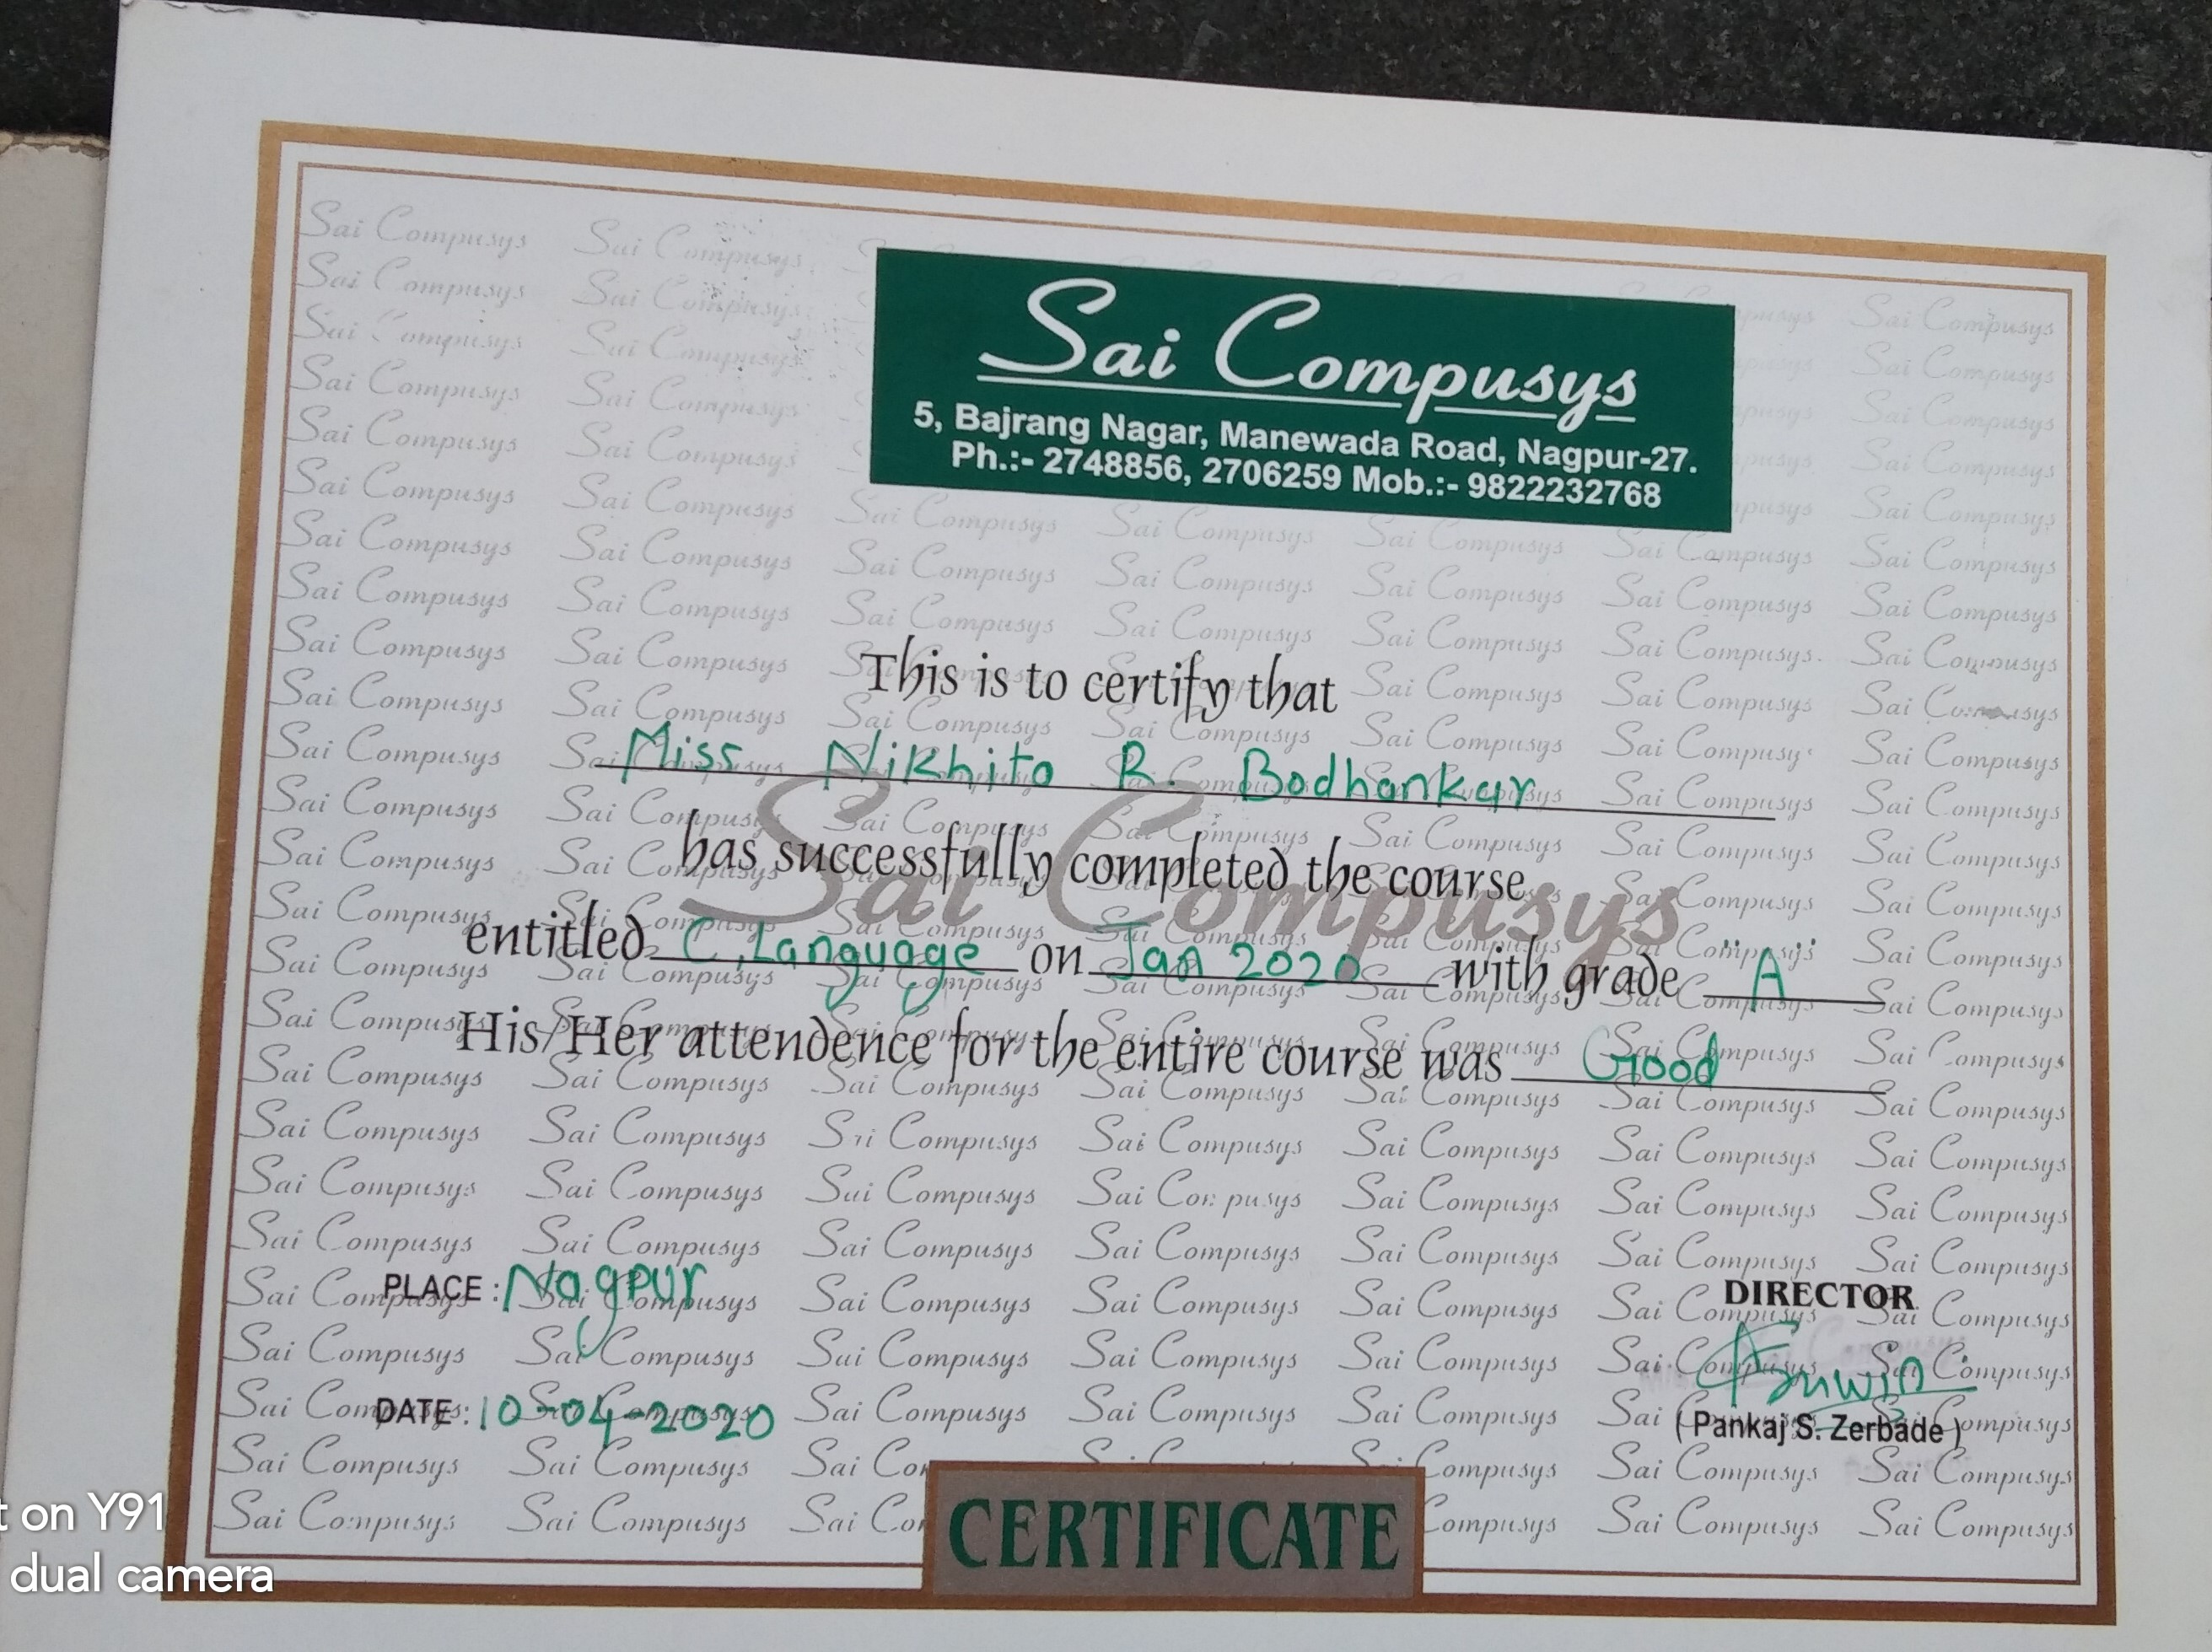 Sai Compusys
5, Bajrang Nagar, Manewada Road, Nagpur-27.
Ph.:- 2748856, 2706259 Mob.:- 9822232768
This is to certify that
Miss Nikhita R. Bodhankar
has successfully completed the course
entitled C, Language on Jan 2020 with grade "A"
His/Her attendence for the entire course was Good
PLACE : Nagpur
DIRECTOR
DATE : 10-04-2020
( Pankaj S. Zerbade )
CERTIFICATE
t on Y91
dual camera